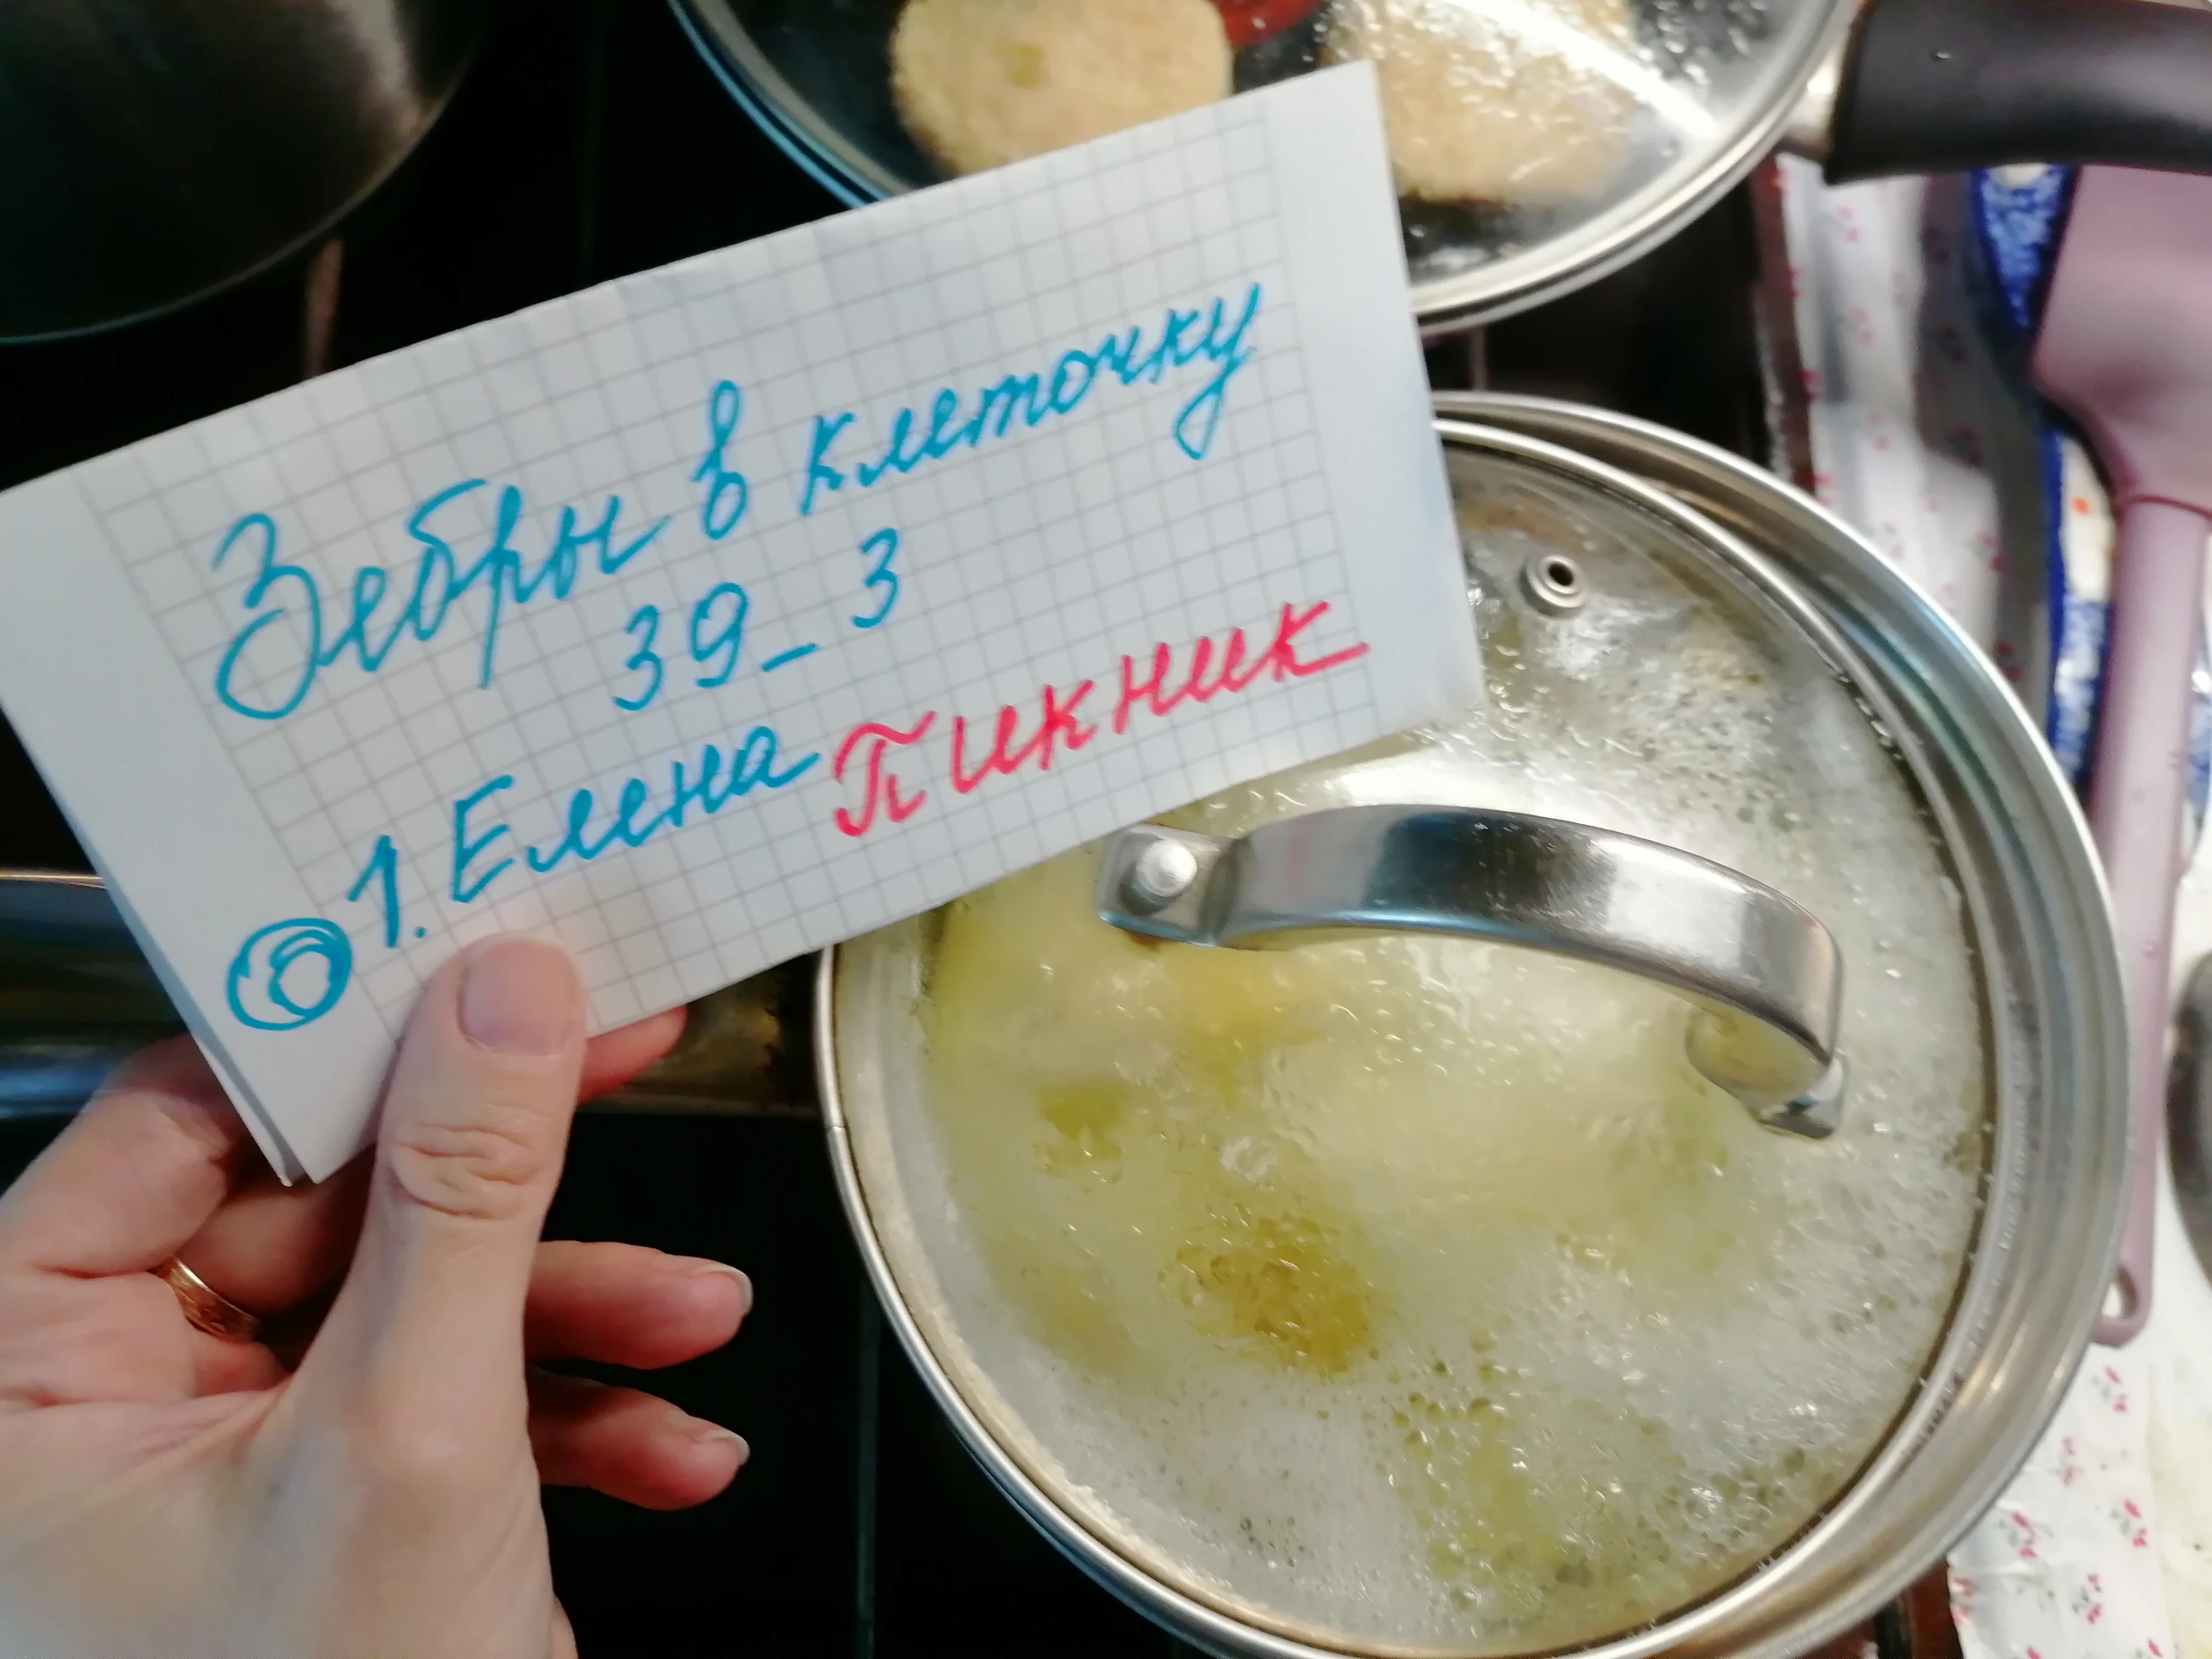 Зебры в клеточку
39_3
1. Елена Пикник